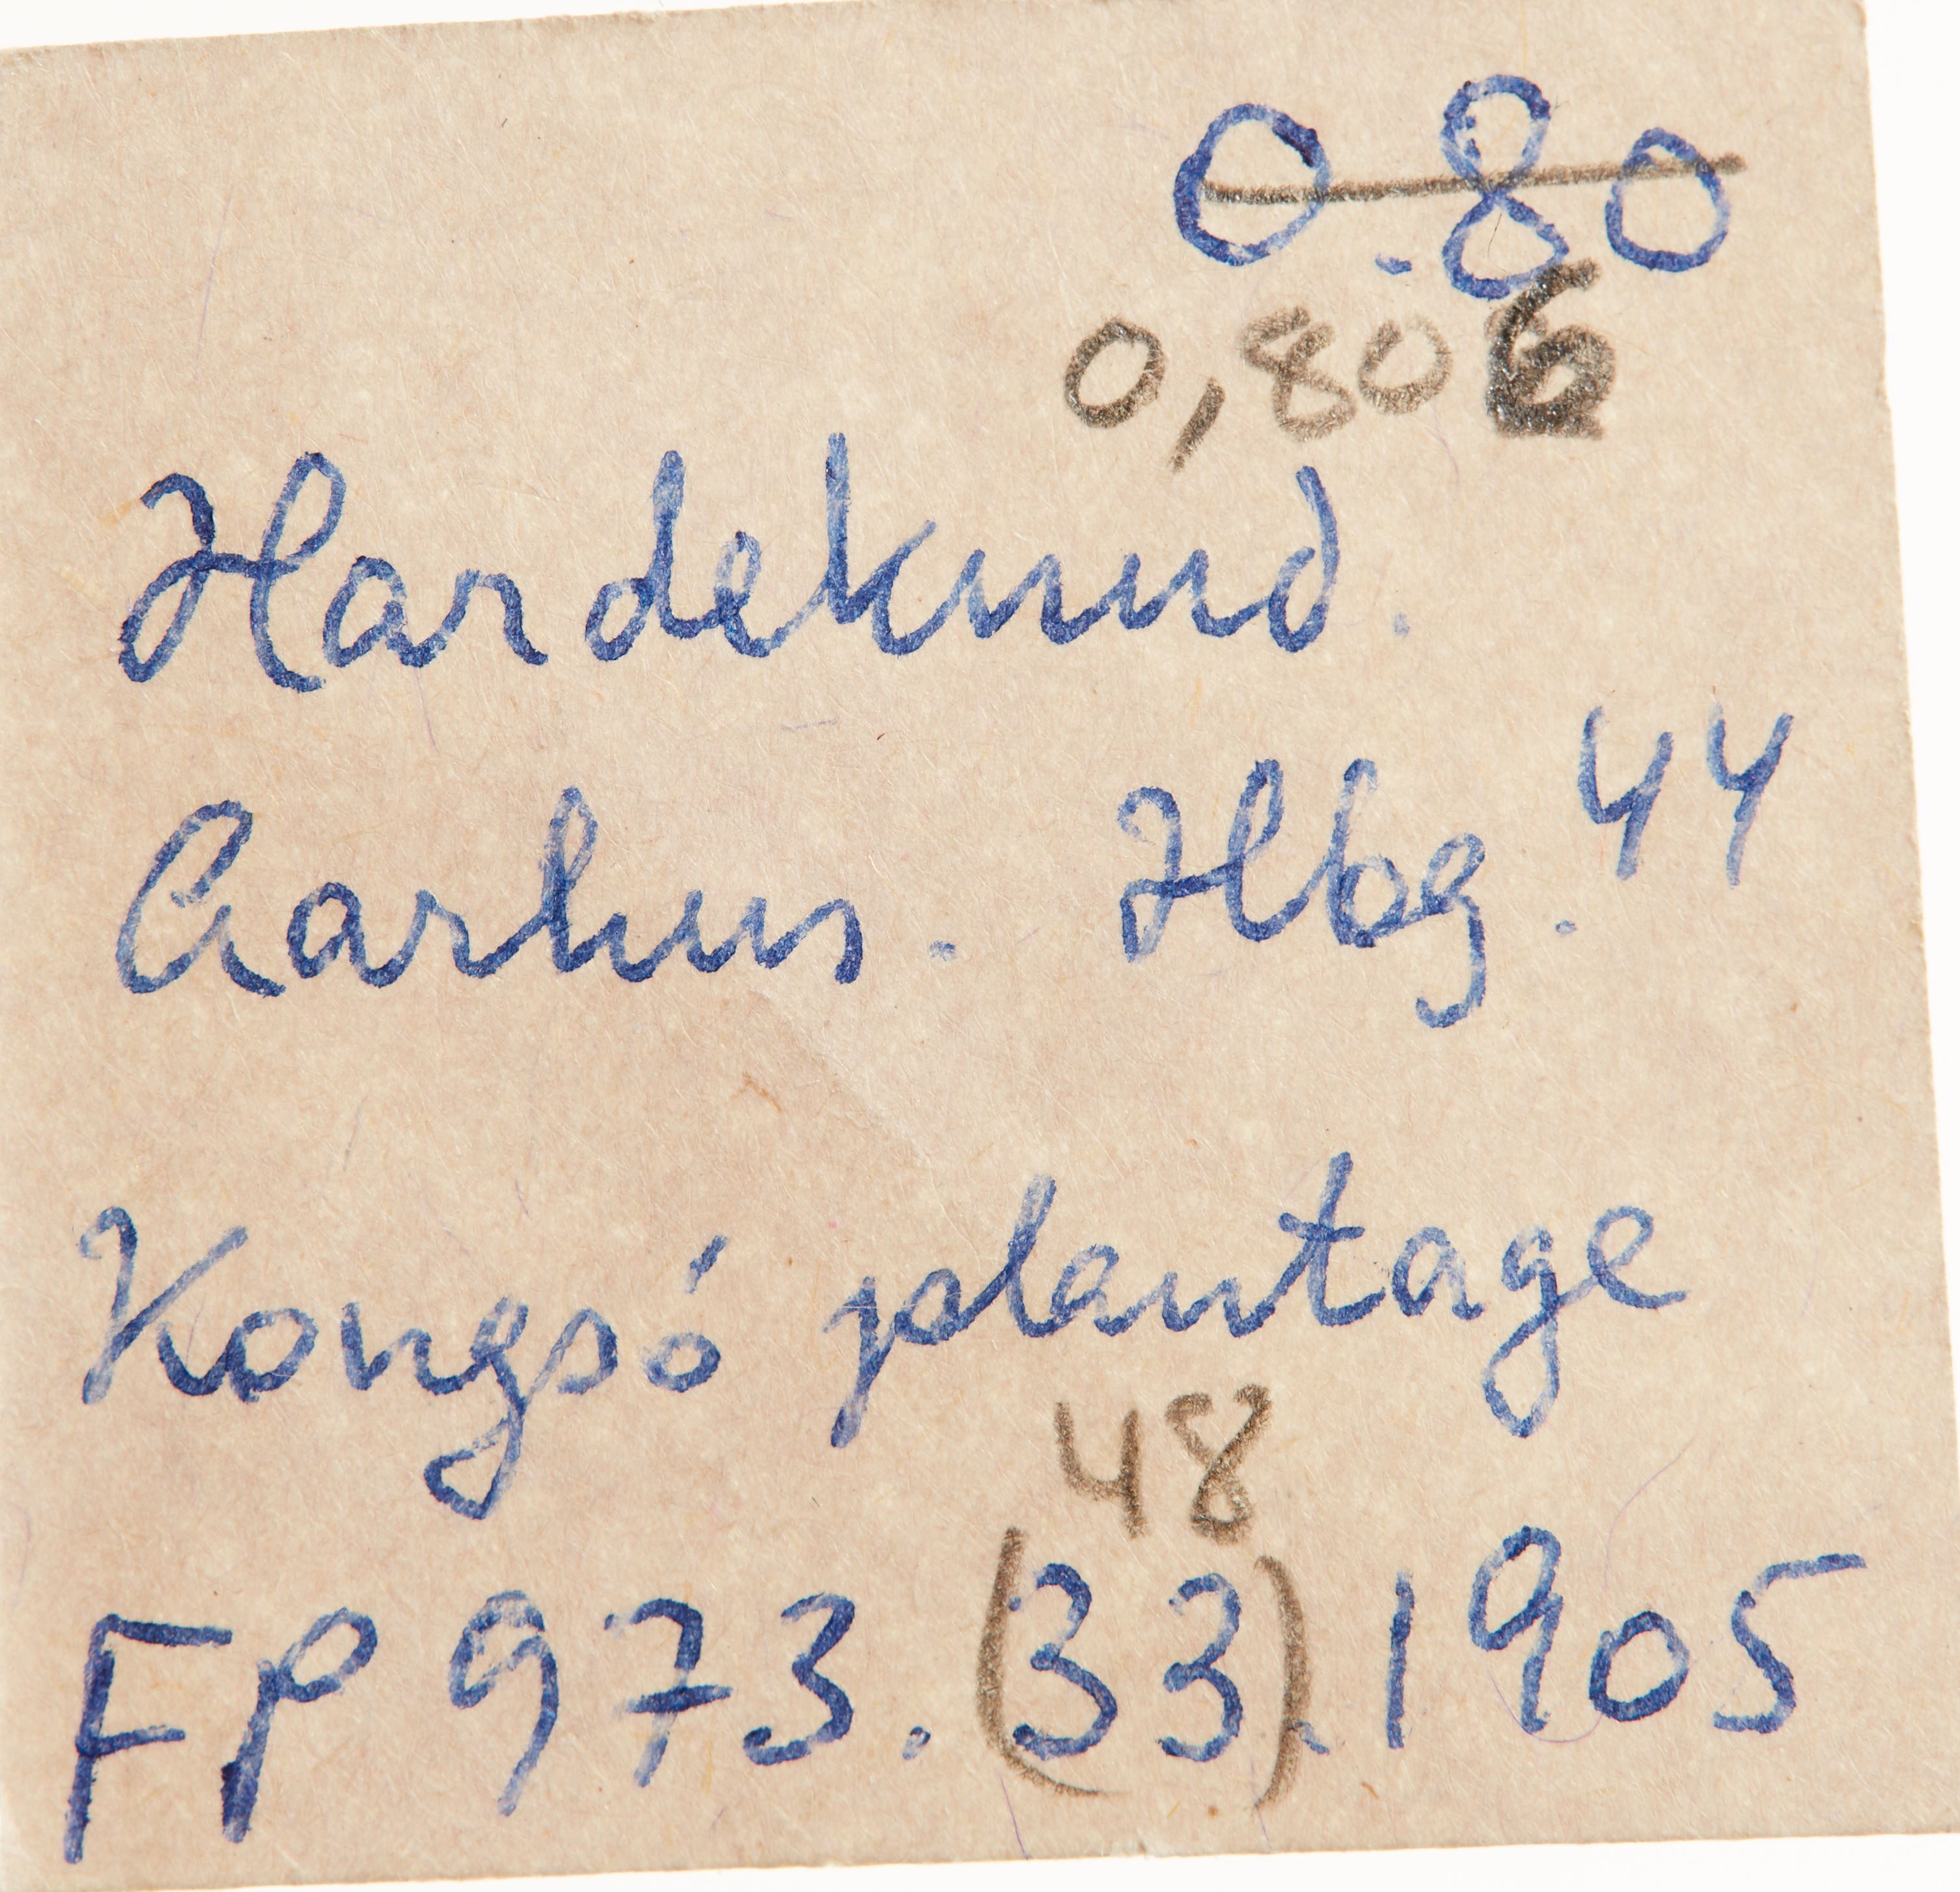 0.80
0,806
Hardeknud.
Aarhus. Hbg. 44
Kongsó plantage
48
FP 973.(33).1905